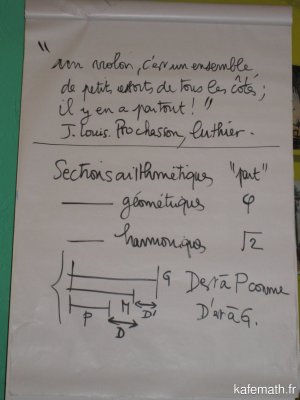 "
un violon, c'est un ensemble
de petits efforts de tous les côtés;
il y en a partout!"
J. Louis. Prochasson, luthier.
Sections arithmétiques "part"
—— géométriques φ
—— harmoniques √2
G D est à P comme
P M D'
D D' est à G.
kafemath.fr